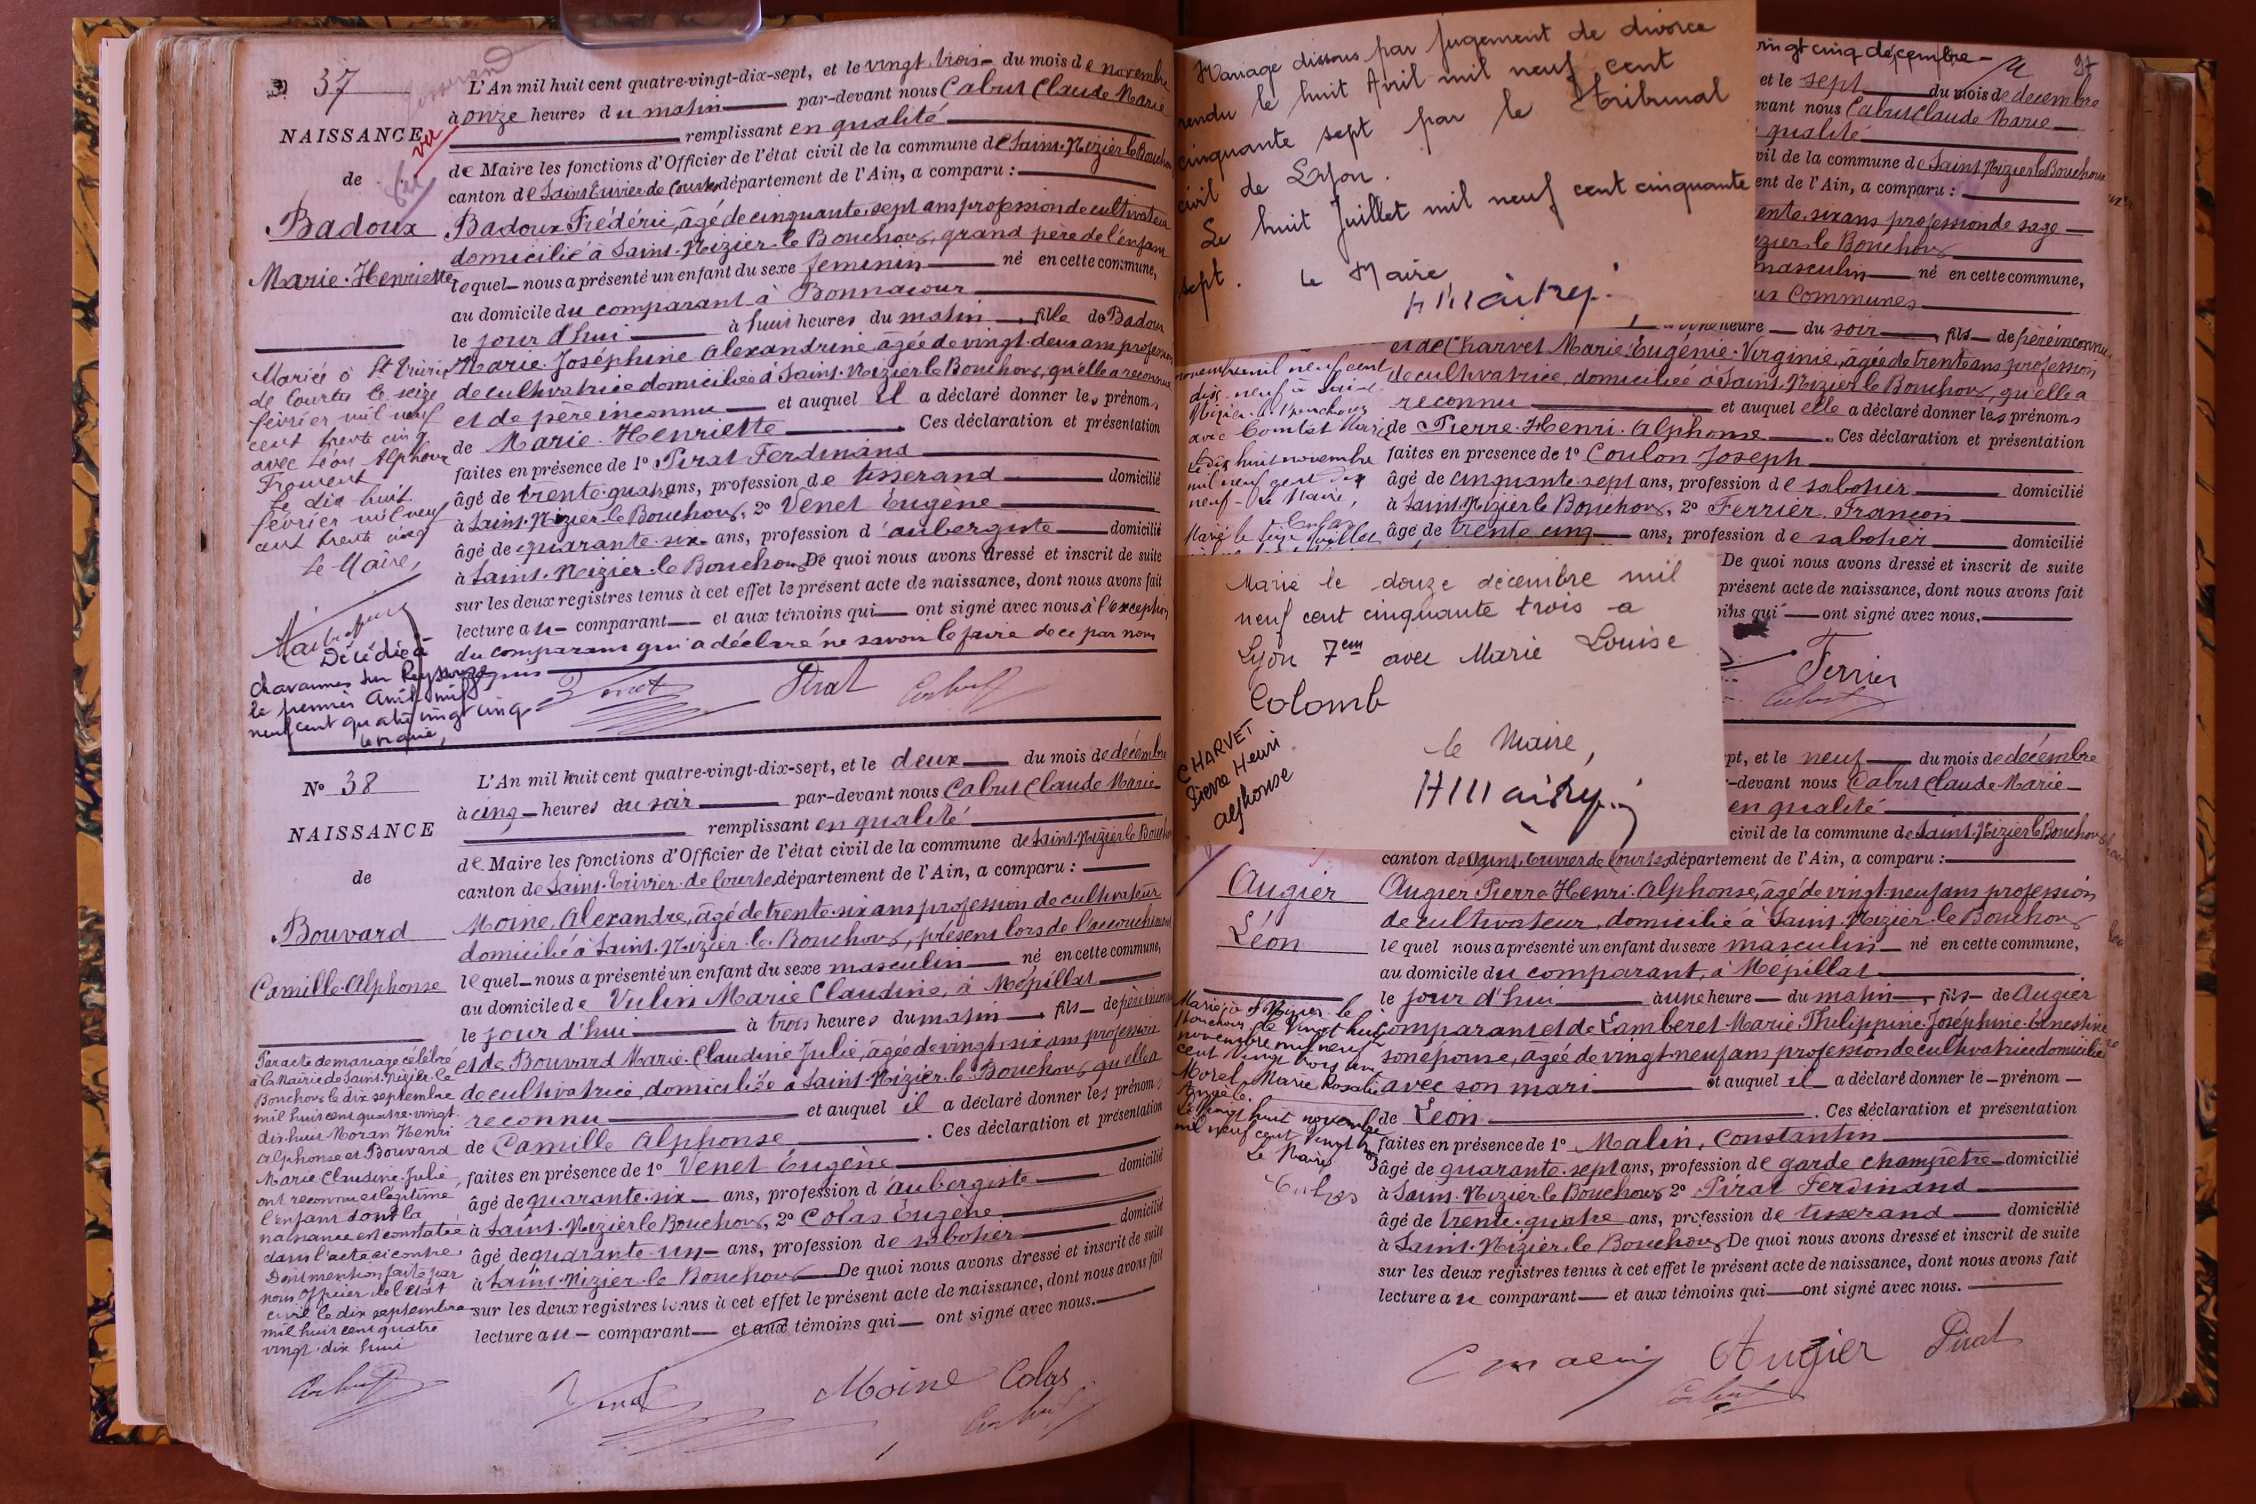 37
NAISSANCE
de
Badoux
Marie-Henriette
vu
L'An mil huit cent quatre-vingt-dix-sept, et le vingt trois du mois de novembre
à onze heures du matin par-devant nous Cabut Claude Marie
remplissant en qualité
de Maire les fonctions d'Officier de l'état civil de la commune de Saint-Nizier le Bouchoux
canton de Saint Trivier de Courtes département de l'Ain, a comparu :
Badoux Frédéric, âgé de cinquante-sept ans profession de cultivateur
domicilié à Saint-Nizier-le Bouchoux, grand père de l'enfant
lequel nous a présenté un enfant du sexe feminin né en cette commune,
au domicile du comparant à Bonnacour
le jour d'hui à huit heures du matin, fille de Badoux
Marie-Joséphine Alexandrine âgée de vingt-deux ans profession
de cultivatrice domiciliée à Saint-Nizier le Bouchoux, qu'elle a reconnue
et de père inconnu et auquel il a déclaré donner les prénoms
de Marie-Henriette. Ces déclaration et présentation
faites en présence de 1° Pirat Ferdinand
âgé de trente-quatre ans, profession de tisserand domicilié
à Saint-Nizier-le Bouchoux, 2° Venet Eugène
âgé de quarante-six ans, profession d'aubergiste domicilié
à Saint-Nizier-le Bouchoux De quoi nous avons dressé et inscrit de suite
sur les deux registres tenus à cet effet le présent acte de naissance, dont nous avons fait
lecture au comparant et aux témoins qui ont signé avec nous à l'exception
du comparant qui a déclaré ne savoir le faire de ce par nous
requis
Venet Pirat Cabut
Mariée à St Trivier
de Courtes le seize
février mil neuf
cent trente cinq
avec Léon Alphonse
Froment
Le dix huit
février mil neuf
cent trente cinq
Le Maire,
Décédée à
Chavannes sur Reyssouze
le premier Avril mil
neuf cent quatre vingt cinq
Le maire,
N° 38
NAISSANCE
de
Bouvard
Camille-Alphonse
L'An mil huit cent quatre-vingt-dix-sept, et le deux du mois de décembre
à cinq heures du soir par-devant nous Cabut Claude Marie
remplissant en qualité
de Maire les fonctions d'Officier de l'état civil de la commune de Saint-Nizier le Bouchoux
canton de Saint-Trivier-de Courtes département de l'Ain, a comparu :
Moine Alexandre, âgé de trente-six ans profession de cultivateur
domicilié à Saint-Nizier-le-Bouchoux, présent lors de l'accouchement
lequel nous a présenté un enfant du sexe masculin né en cette commune,
au domicile de Vulin Marie Claudine, à Mépillat
le jour d'hui à trois heures du matin, fils de père inconnu
et de Bouvard Marie-Claudine Julie, âgée de vingt-six ans profession
de cultivatrice, domiciliée à Saint-Nizier-le-Bouchoux qu'elle a
reconnu et auquel il a déclaré donner les prénoms
de Camille Alphonse. Ces déclaration et présentation
faites en présence de 1° Venet Eugène
âgé de quarante-six ans, profession d'aubergiste domicilié
à Saint-Nizier le Bouchoux, 2° Colas Eugène
âgé de quarante-un ans, profession de sabotier domicilié
à Saint-Nizier-le Bouchoux De quoi nous avons dressé et inscrit de suite
sur les deux registres tenus à cet effet le présent acte de naissance, dont nous avons fait
lecture au comparant et aux témoins qui ont signé avec nous.
Venet Moine Colas
Cabut
Par acte de mariage célébré
à la Mairie de Saint-Nizier-le
Bouchoux le dix septembre
mil huit cent quatre-vingt
dix-huit Moran Henri
Alphonse et Bouvard
Marie Claudine Julie,
ont reconnu et légitimé
l'enfant dont la
naissance est constatée
dans l'acte ci contre.
Dont mention faite par
nous officier de l'état
civil le dix septembre
mil huit cent quatre
vingt-dix huit
Cabut
Mariage dissous par jugement de divorce
rendu le huit Avril mil neuf cent
cinquante sept par le Tribunal
civil de Lyon.
Le huit Juillet mil neuf cent cinquante
sept. Le Maire
vingt cinq décembre
37
et le sept du mois de décembre
vant nous Cabut Claude Marie
qualité
vil de la commune de Saint-Nizier le Bouchoux
ent de l'Ain, a comparu :
ente-six ans profession de sage
izier-le Bouchoux
masculin né en cette commune,
ux Communes
heure du soir, fils de père inconnu
et de Charvet Marie-Eugénie-Virginie, âgée de trente ans profession
de cultivatrice, domiciliée à Saint-Nizier le Bouchoux, qu'elle a
reconnu et auquel elle a déclaré donner les prénoms
de Pierre-Henri-Alphonse. Ces déclaration et présentation
faites en présence de 1° Coulon Joseph
âgé de cinquante-sept ans, profession de sabotier domicilié
à Saint-Nizier le Bouchoux, 2° Ferrier François
âgé de trente cinq ans, profession de sabotier domicilié
De quoi nous avons dressé et inscrit de suite
présent acte de naissance, dont nous avons fait
oins qui ont signé avec nous.
Ferrier
Cabut
mil neuf cent
dix-neuf à Saint
Nizier-le Bouchoux
avec Comtet Marie
Le dix huit novembre
mil neuf cent dix
neuf - Le Maire,
Marié le douze décembre mil
neuf cent cinquante trois à
Lyon 7em avec Marie Louise
Colomb
le Maire,
CHARVET
Pierre Henri
Alphonse
pt, et le neuf du mois de décembre
-devant nous Cabut Claude Marie
en qualité
civil de la commune de Saint-Nizier le Bouchoux
canton de Saint-Trivier de Courtes département de l'Ain, a comparu :
Augier
Léon
Augier Pierre Henri-Alphonse, âgé de vingt-neuf ans profession
de cultivateur, domicilié à Saint-Nizier-le Bouchoux
lequel nous a présenté un enfant du sexe masculin né en cette commune,
au domicile du comparant, à Mépillat
le jour d'hui à une heure du matin, fils de Augier
comparant et de Lamberet Marie-Philippine-Joséphine-Ernestine
son épouse, âgée de vingt-neuf ans profession de cultivatrice domiciliée
avec son mari et auquel il a déclaré donner le prénom
de Léon. Ces déclaration et présentation
faites en présence de 1° Malin, Constantin
âgé de quarante-sept ans, profession de garde champêtre domicilié
à Saint-Nizier le Bouchoux 2° Pirat Ferdinand
âgé de trente-quatre ans, profession de tisserand domicilié
à Saint-Nizier-le Bouchoux De quoi nous avons dressé et inscrit de suite
sur les deux registres tenus à cet effet le présent acte de naissance, dont nous avons fait
lecture au comparant et aux témoins qui ont signé avec nous.
Malin Augier Pirat
Cabut
Marié à St Nizier le
Bouchoux le vingt huit
novembre mil neuf
cent vingt trois avec
Morel Marie Rosalie
Angèle.
Le vingt huit novembre
mil neuf cent vingt trois
Le Maire